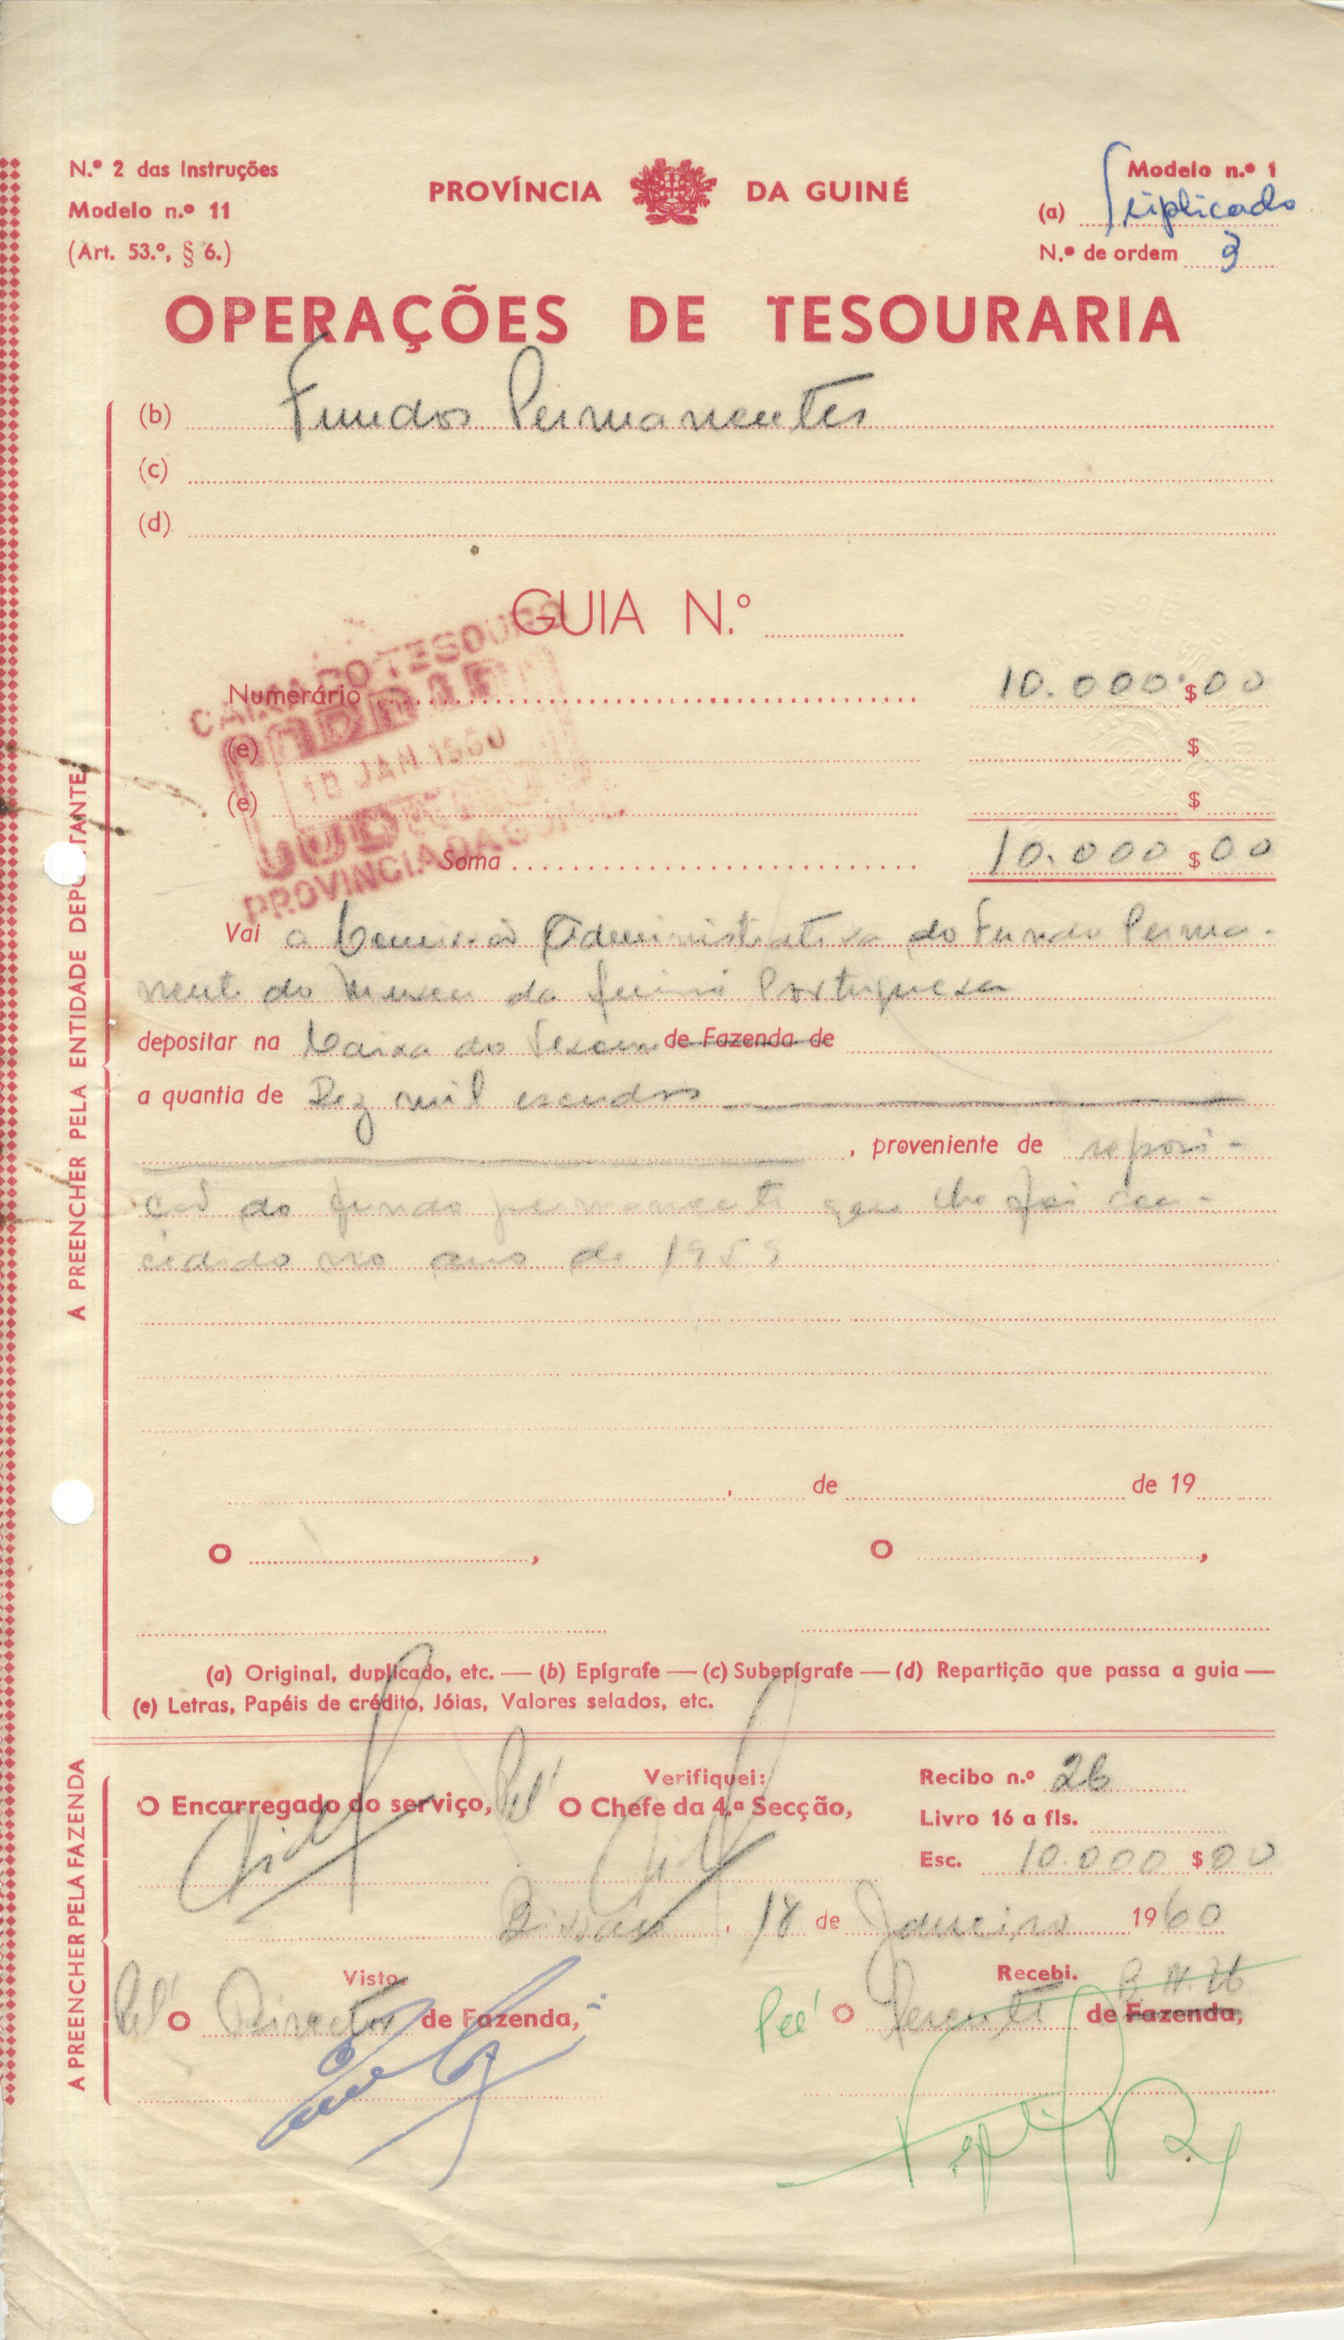 N.º 2 das Instruções
Modelo n.º 11
(Art. 53.º, § 6.)
PROVÍNCIA DA GUINÉ
Modelo n.º 1
(a) Triplicado
N.º de ordem 3
OPERAÇÕES DE TESOURARIA
(b) Fundos Permanentes
(c)
(d)
GUIA N.º
CAIXA DO TESOURO
18 JAN 1960
PROVINCIA DA GUINÉ
Numerário 10.000$00
(e) $
(e) $
Soma 10.000$00
Vai a Comissão Administrativa do Fundo Perma-
nente do Museu da Guiné Portuguesa
depositar na Caixa do Tesouro de Fazenda de
a quantia de Dez mil escudos
, proveniente de reposi-
ção do fundo permanente que lhe foi con-
cedido no ano de 1959
, de de 19
O , O ,
(a) Original, duplicado, etc. — (b) Epígrafe — (c) Subepígrafe — (d) Repartição que passa a guia —
(e) Letras, Papéis de crédito, Jóias, Valores selados, etc.
A PREENCHER PELA ENTIDADE DEPO TANTE
O Encarregado do serviço,
Verifiquei:
Pel' O Chefe da 4.ª Secção,
Recibo n.º 26
Livro 16 a fls.
Esc. 10.000$00
Bissau, 18 de Janeiro 1960
Visto
Pel' O Director de Fazenda,
Recebi.
Pel' O Gerente B. N. U. de Fazenda,
A PREENCHER PELA FAZENDA